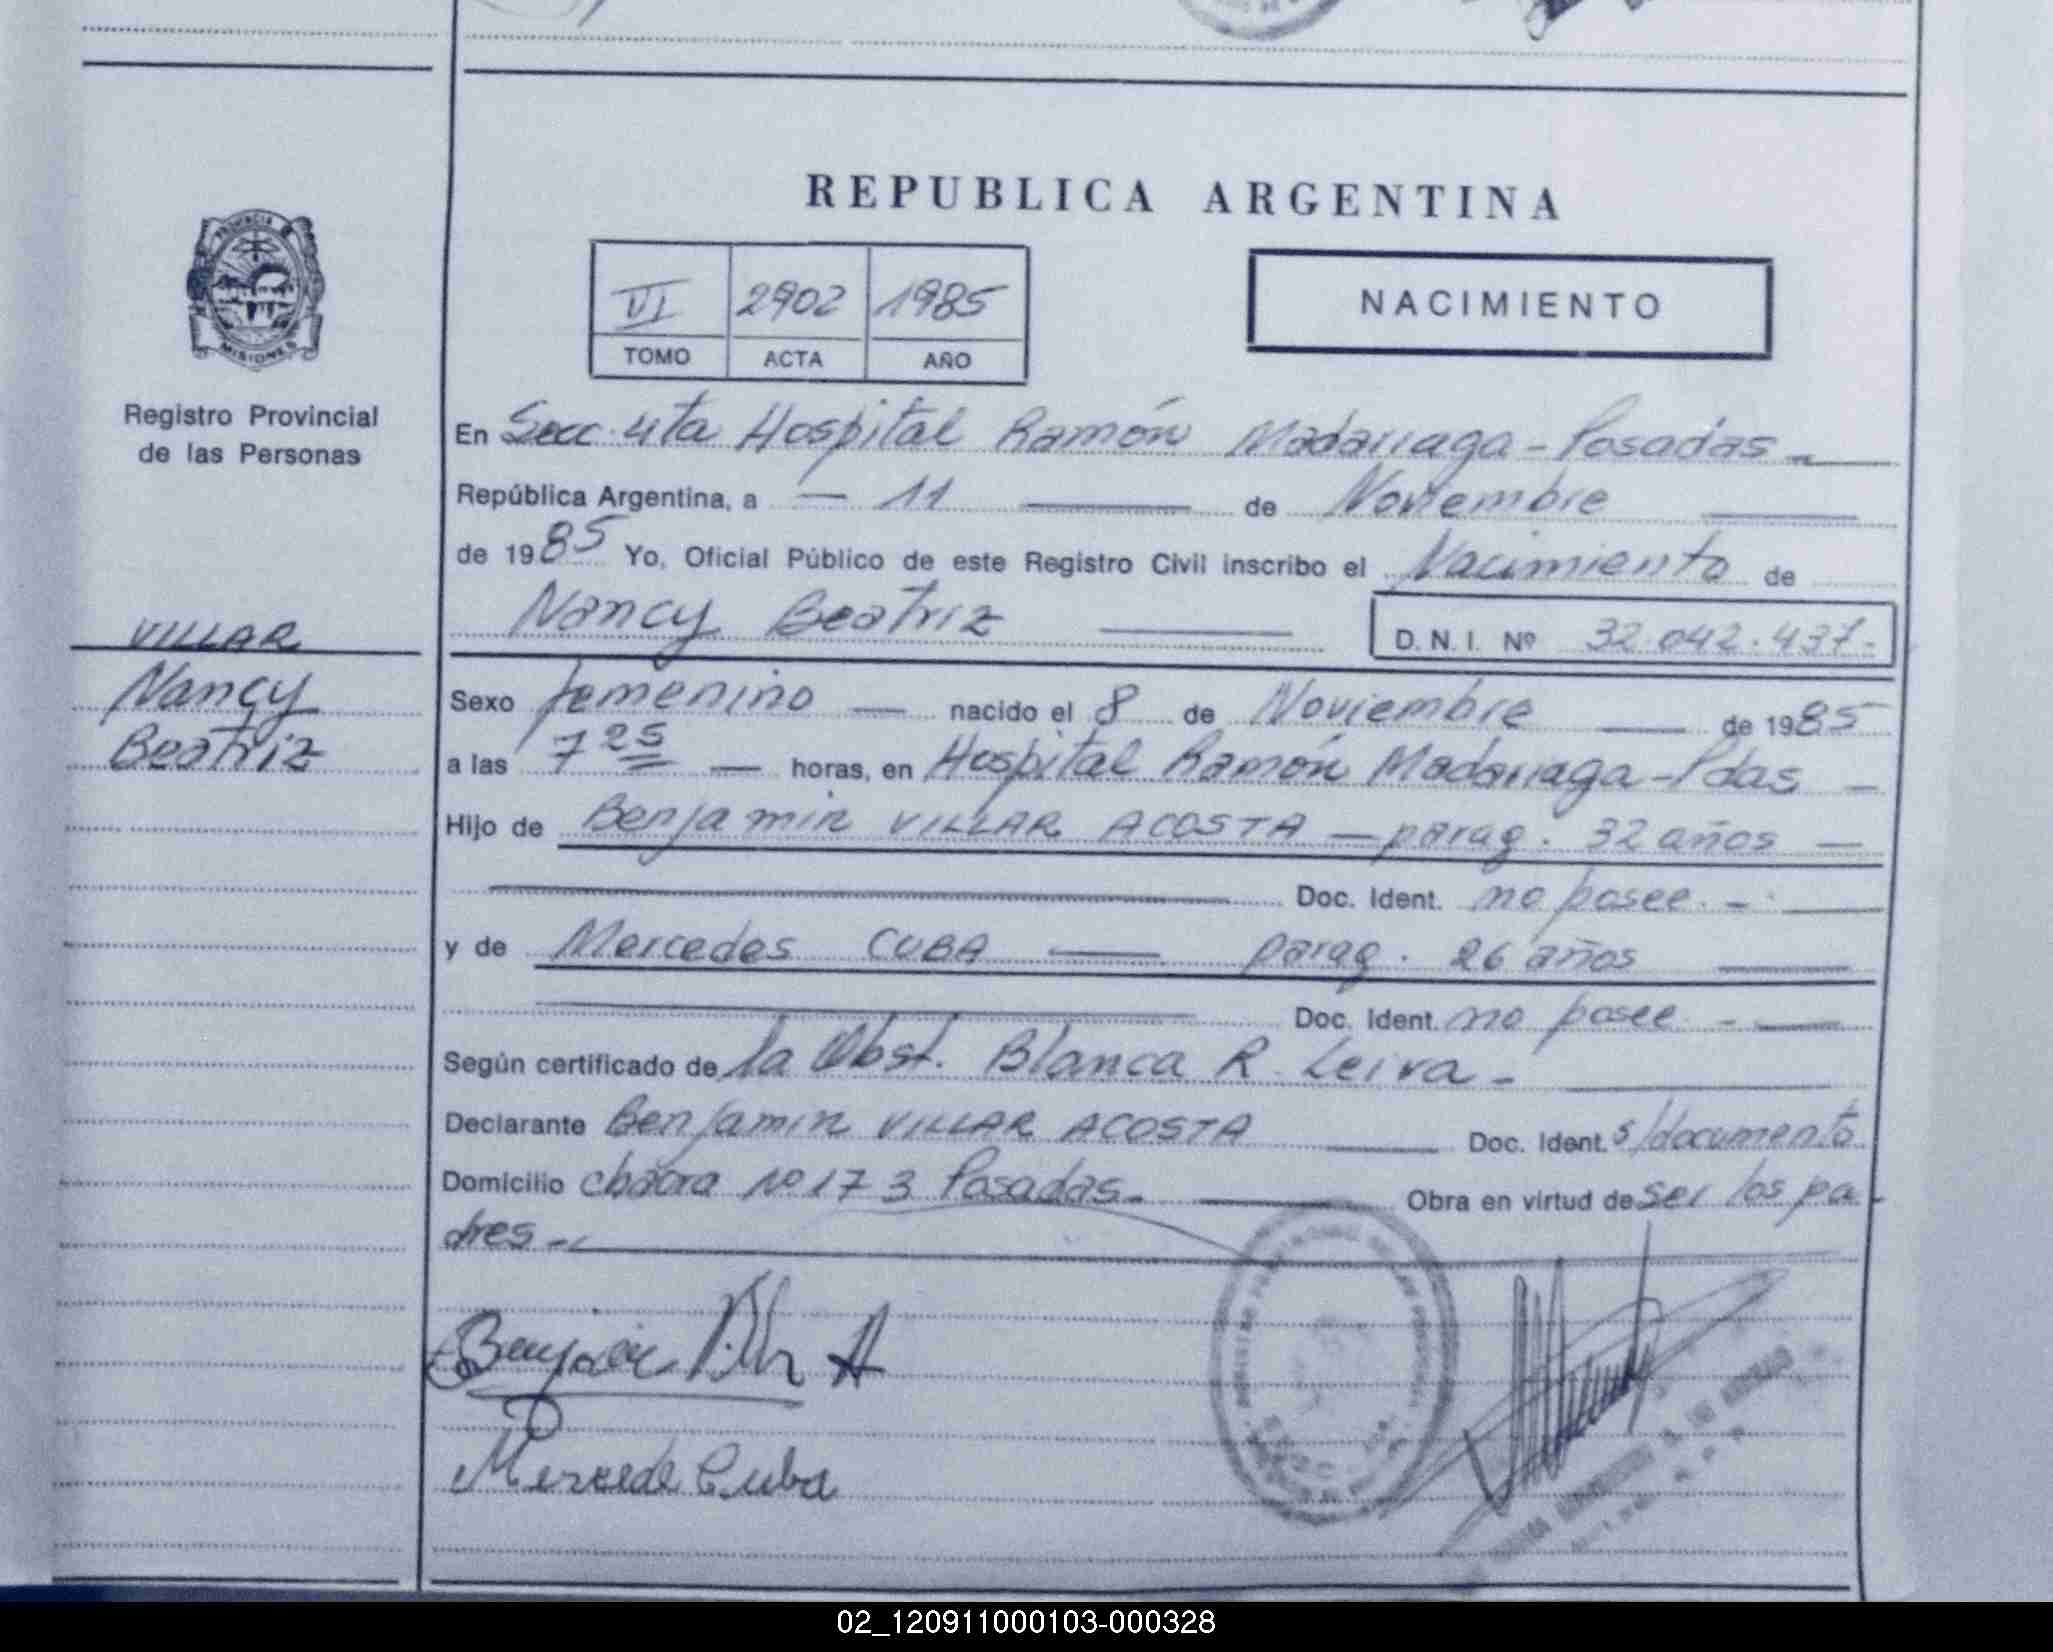 REPUBLICA ARGENTINA
PROVINCIA DE
MISIONES
Registro Provincial
de las Personas
VILLAR
Nancy
Beatriz
VI 2902 1985
TOMO ACTA AÑO
NACIMIENTO
En Secc. 4ta Hospital Ramón Madariaga - Posadas
República Argentina, a — 11 — de Noviembre
de 1985 Yo, Oficial Público de este Registro Civil inscribo el Nacimiento de
Nancy Beatriz — D. N. I. Nº 32.042.437.-
Sexo femenino — nacido el 8 de Noviembre — de 1985
a las 7 25 — horas, en Hospital Ramón Madariaga - Pdas —
Hijo de Benjamin VILLAR ACOSTA — parag. 32 años —
Doc. Ident. no posee. -
y de Mercedes CUBA — parag. 26 años
Doc. Ident. no posee -
Según certificado de la Obst. Blanca R. Leiva -
Declarante Benjamin VILLAR ACOSTA — Doc. Ident. s/documento
Domicilio chacra Nº 173 Posadas. — Obra en virtud de ser los pa-
dres -
Mercede Cuba
02_120911000103-000328